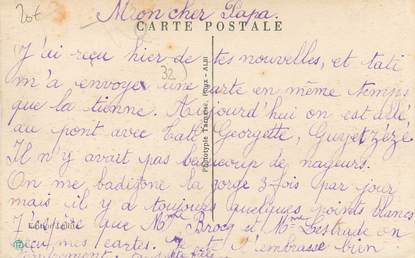 Mon cher Papa.
CARTE POSTALE
J'ai reçu hier de tes nouvelles, et tati
m'a envoyé une carte en même temps
que la tienne. Aujourd'hui on est allé
au pont avec Tati, Georgette, Guy et Zézé
Il n'y avait pas beaucoup de nageurs.
On me badigeonne la gorge 3 fois par jour
mais il y a toujours quelques points blancs
que Mme Brocq et Mme Lestrade on
reçu mes cartes. Je t'embrasse bien